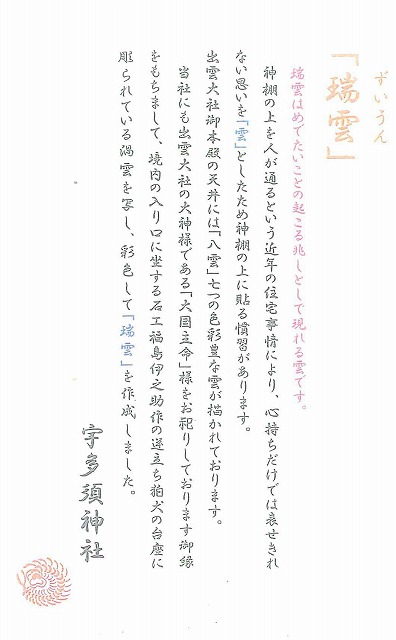 ずいうん
「瑞雲」
瑞雲はめでたいことの起こる兆しとして現れる雲です。
神棚の上を人が通るという近年の住宅事情により、心持ちだけでは表せきれ
ない思いを「雲」としたため神棚の上に貼る慣習があります。
出雲大社御本殿の天井には「八雲」七つの色彩豊な雲が描かれております。
当社にも出雲大社の大神様である「大国主命」様をお祀りしております御縁
をもちまして、境内の入り口に坐する石工福島伊之助作の逆立ち狛犬の台座に
彫られている渦雲を写し、彩色して「瑞雲」を作成しました。
宇多須神社